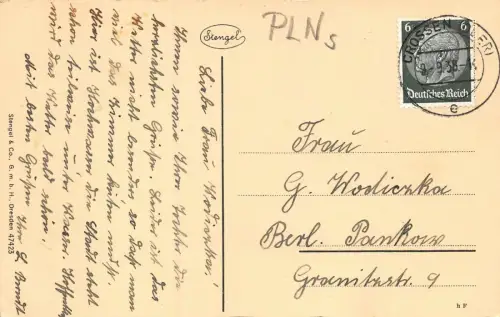 Stengel
PLN s
6 6
Deutsches Reich
CROSSEN (ODER)
e
Liebe Frau Wodiczka!
Ihnen sowie Ihrer Mutter die
herzlichsten Grüße. Leider ist das
Wetter nicht besonders so daß man
viel das Zimmer hüten muß.
Hier ist Hochwasser die Stadt steht
schon teilweise unter Wasser. Hoffentlich
wird das Wetter bald schön!
Mit besten Grüßen Ihr
Stengel & Co., G. m. b. H., Dresden 47423
Frau
G. Wodiczka
Berl. Pankow
Granitzstr. 9
h F